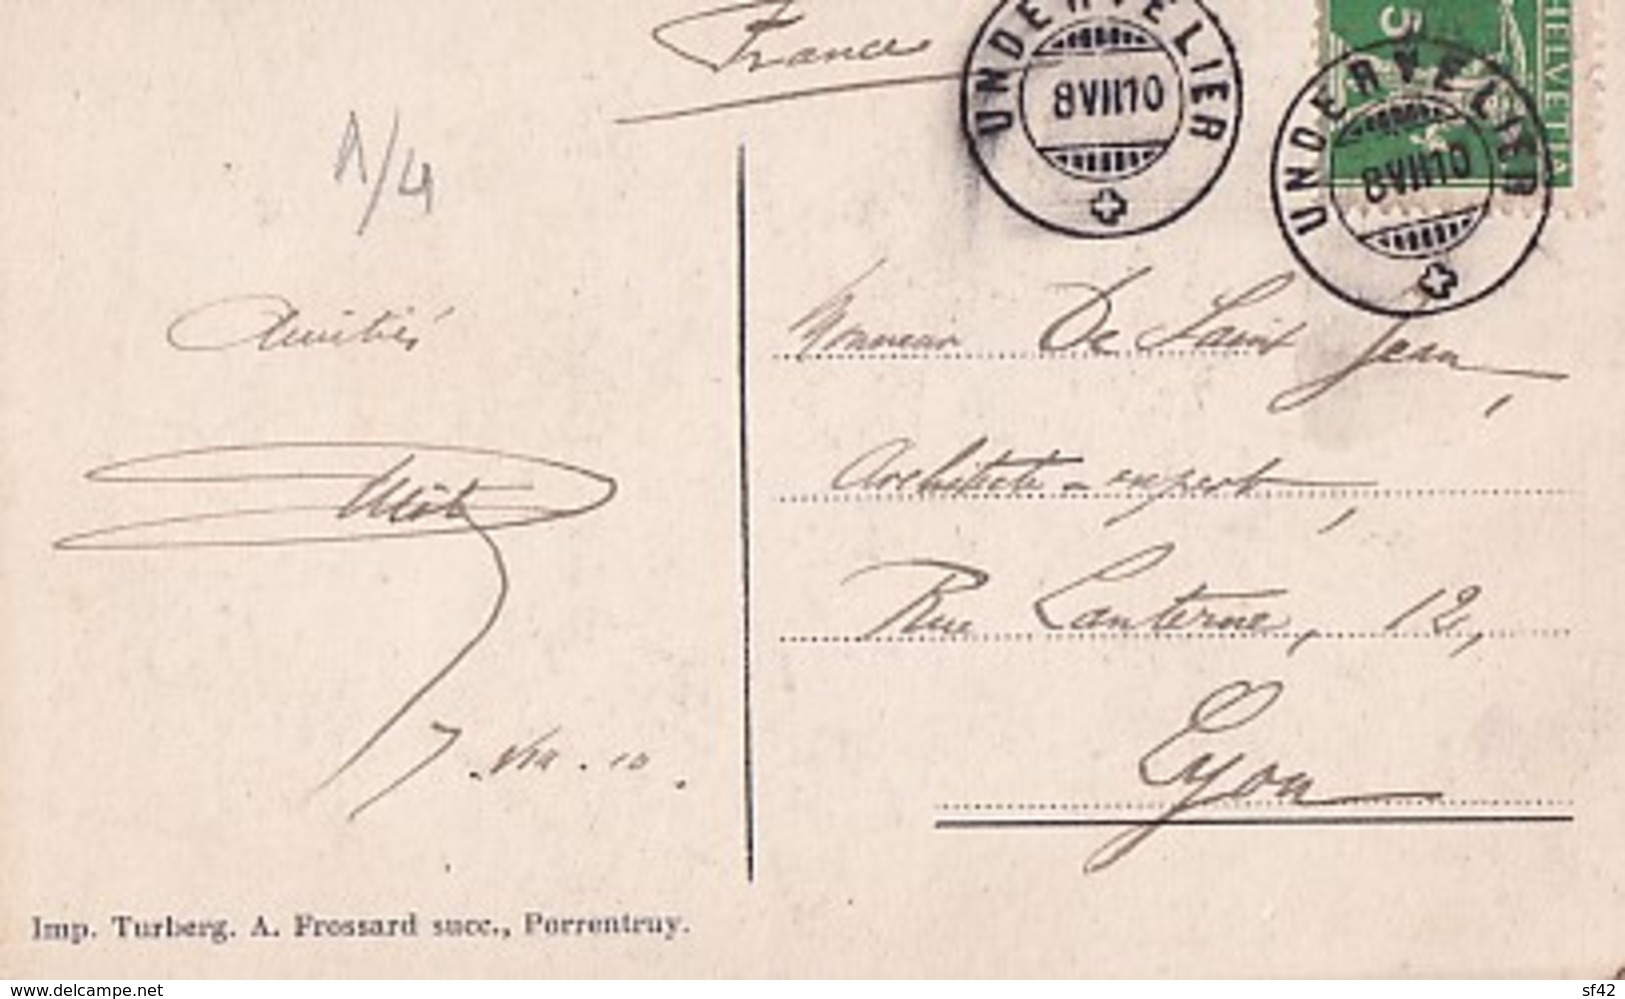 France
UNDERVELIER
8VII10
5
HELVETIA
UNDERVELIER
8VII10
A/4
Amitiés
Monsieur De Saint Jean,
Architecte-expert,
Rue Lanterne, 12,
Lyon
7.VII.10.
Imp. Turberg. A. Frossard succ., Porrentruy.
www.delcampe.net
sf42